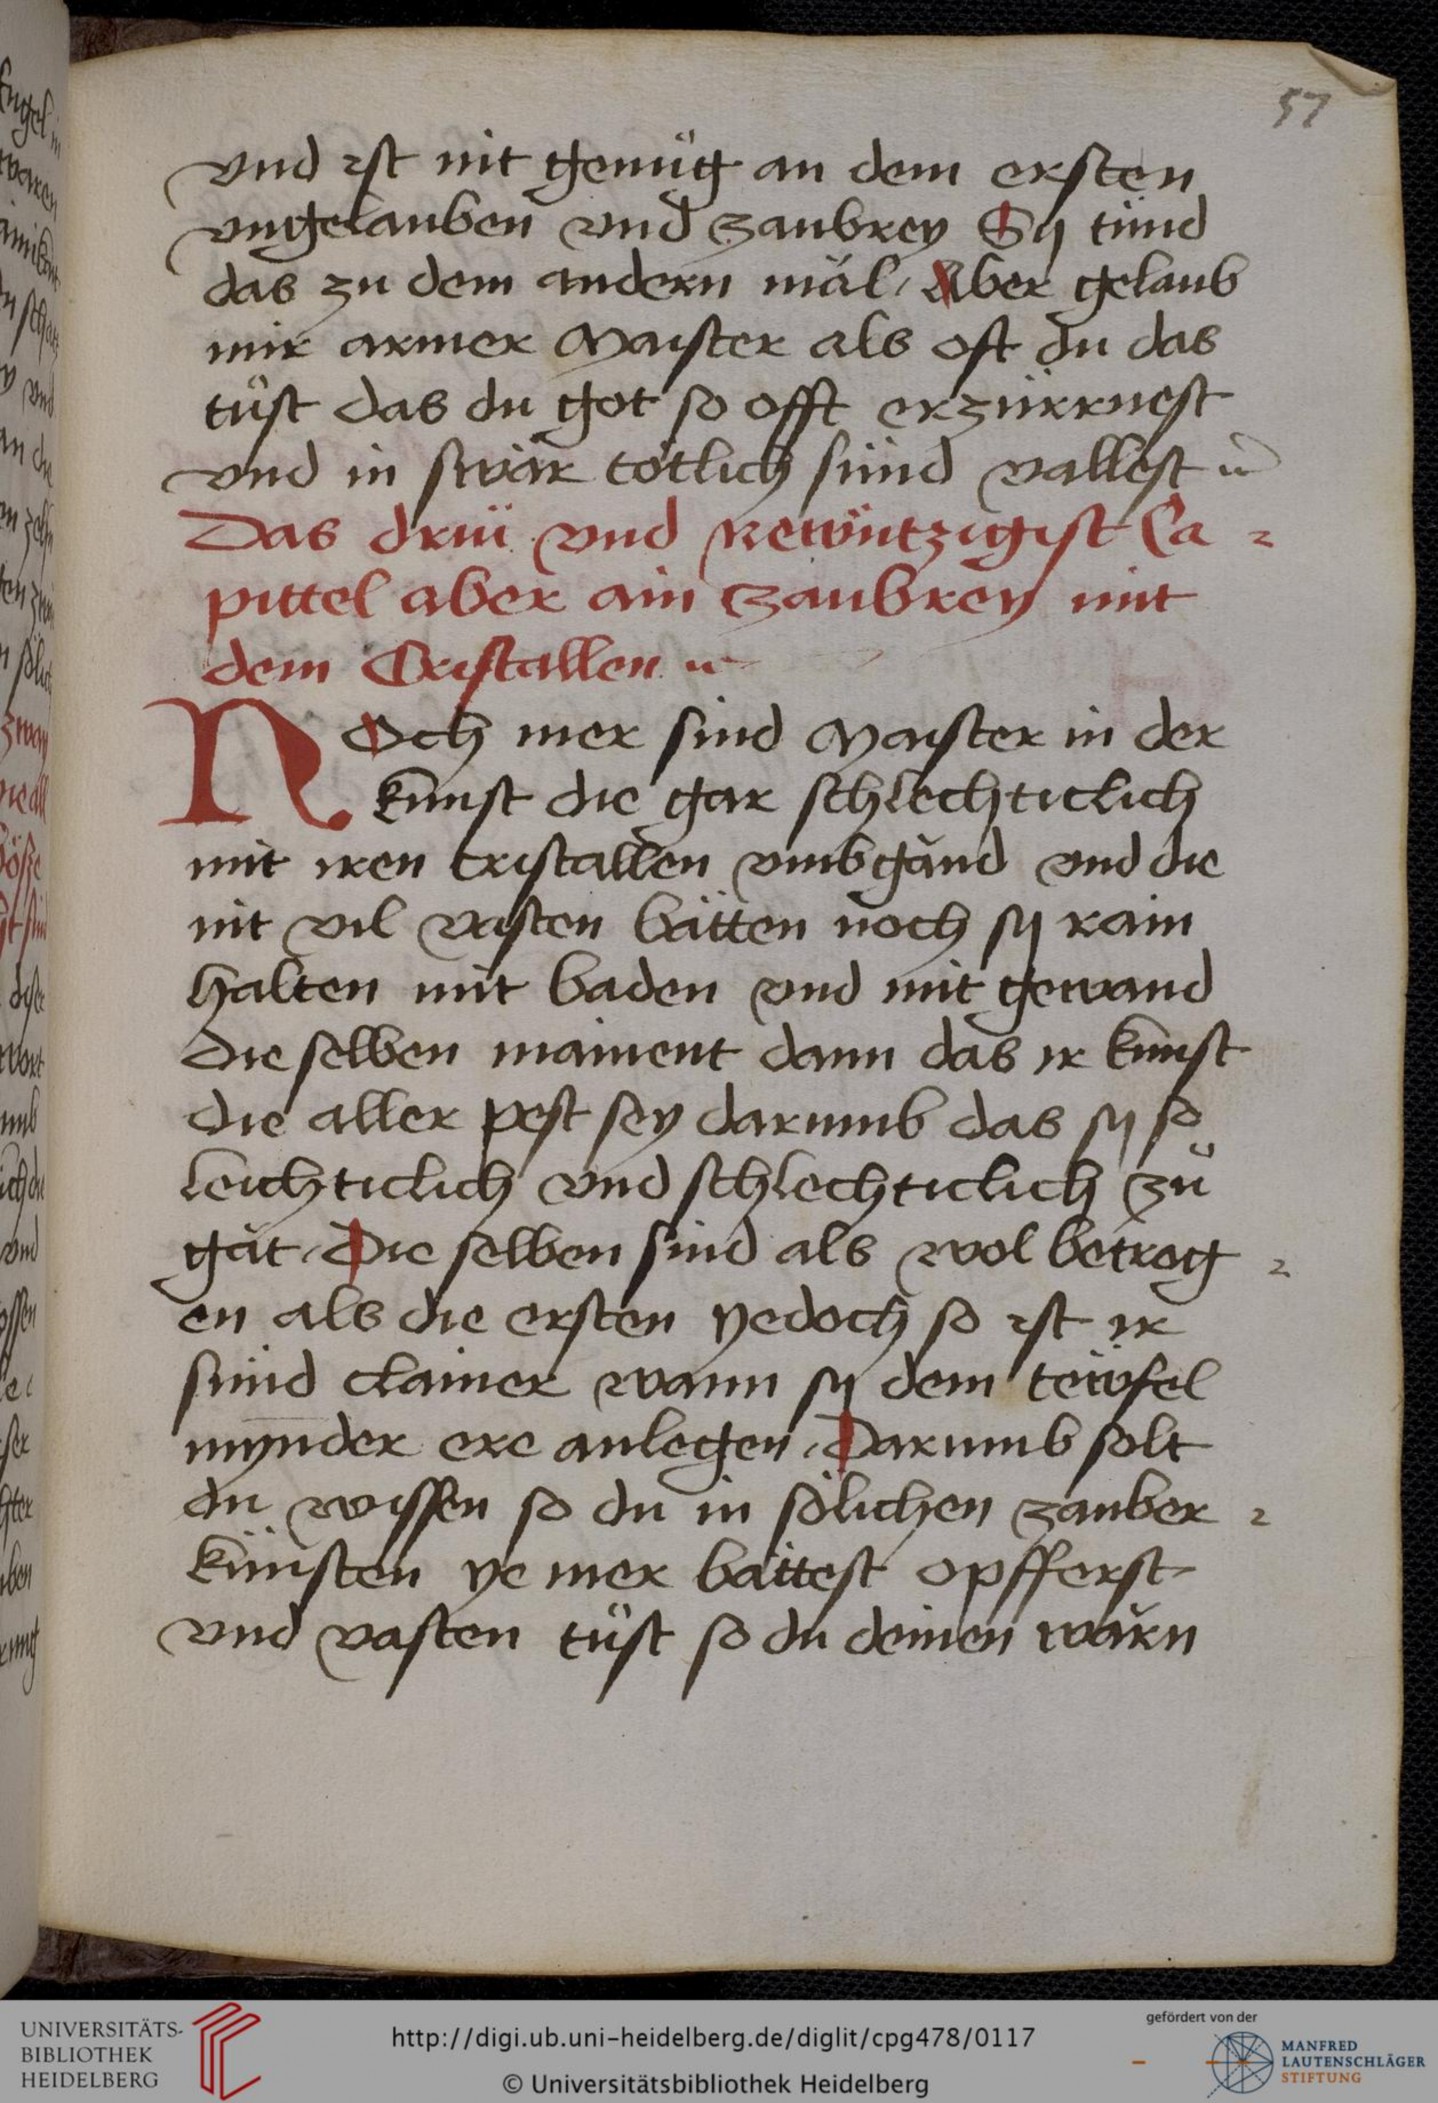 57
vnd ist nit genüg an dem ersten
vngelauben vnd zaubrey Sy tünd
das zu dem andern mäl, Aber gelaub
mir armer Maister als oft du das
tüst das du got so offt erzürrnest
vnd in swär tötlich sünd vallest
Das drüi vnd Newintzigist Ca=
pittel aber ain zaubrey mit
dem Cristallen
Noch mer sind Maister in der
kunst die gar schlechticlich
mit iren cristallen vmbgänd vnd die
nit vil vasten bätten noch sy rain
halten mit baden vnd mit gewand
Die selben mainent dann das ir kunst
die aller pest sey darumb das sy so
leichticlich vnd schlechticlich zü
gät, Die selben sind als wol betrog=
en als die ersten yedoch so ist ir
sünd clainer wann sy dem tewfel
mynder ere anlegen, Darumb solt
du wissen so du in sölichen zauber=
künsten ye mer bättest opfferst
vnd vasten tüst so du deinen wärn
UNIVERSITÄTS-
BIBLIOTHEK
HEIDELBERG
http://digi.ub.uni-heidelberg.de/diglit/cpg478/0117
© Universitätsbibliothek Heidelberg
gefördert von der
MANFRED
LAUTENSCHLÄGER
STIFTUNG